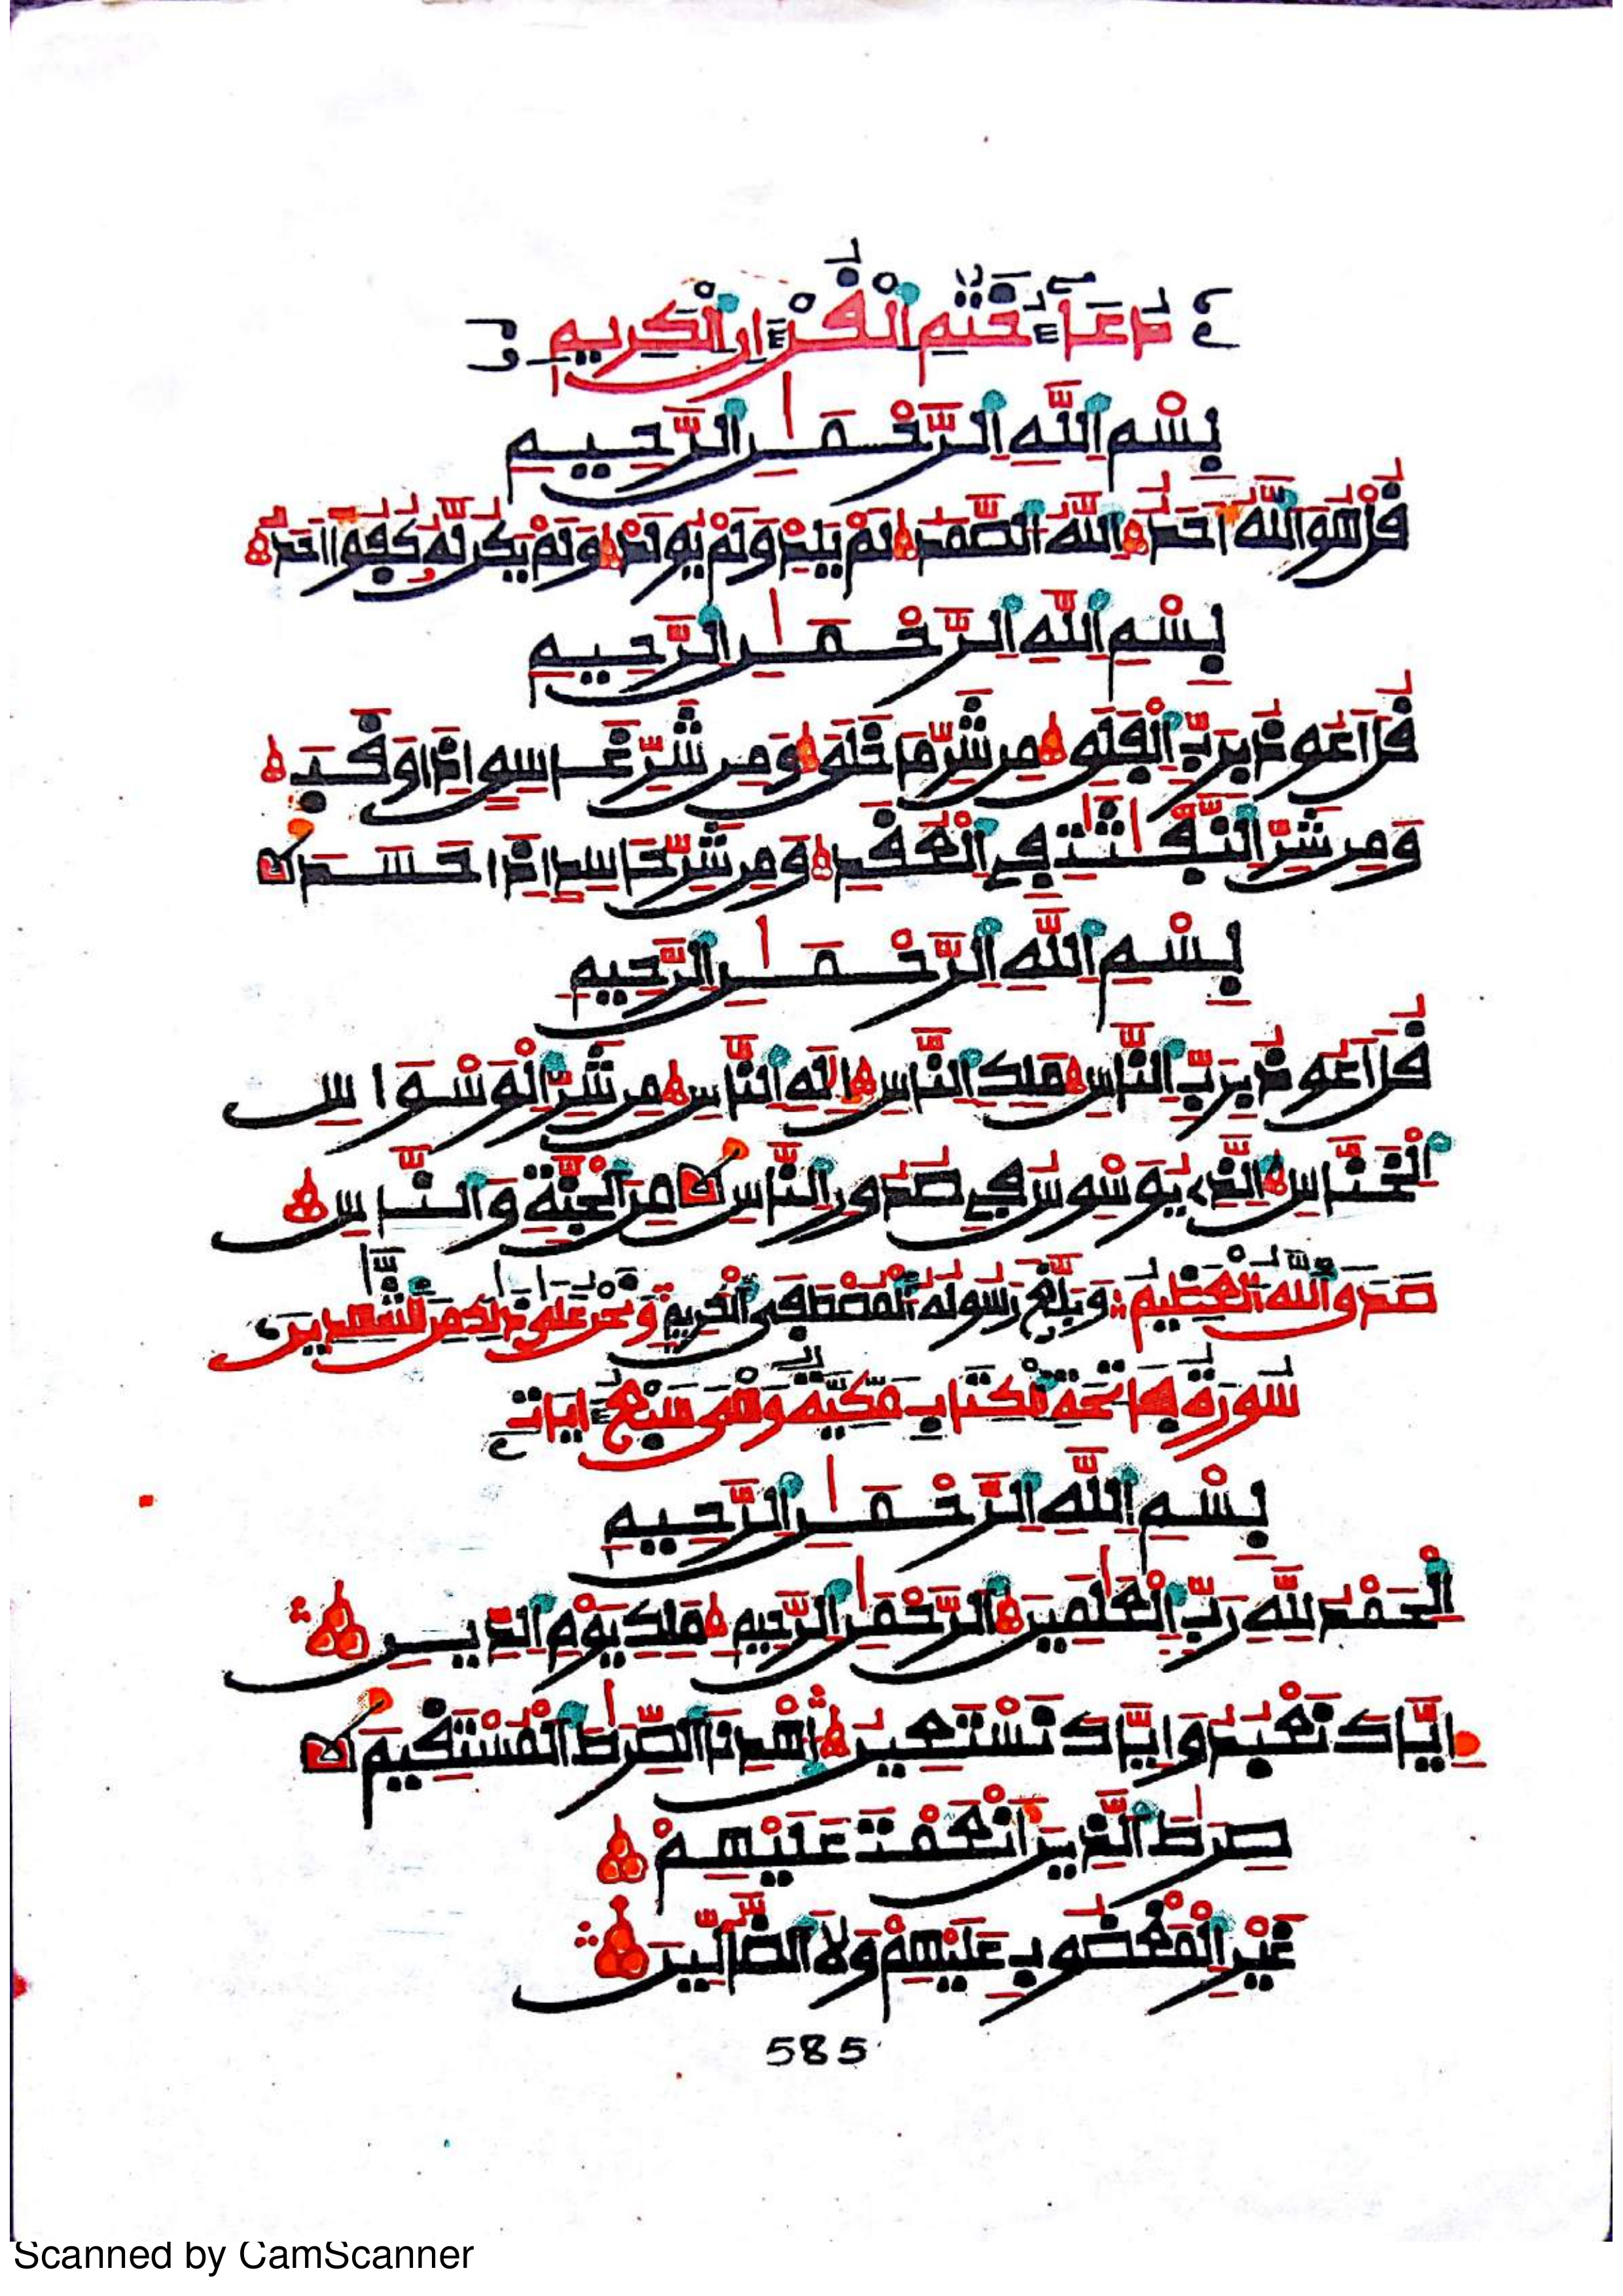 دُعَاءُ خَتْمِ الْقُرْءَانِ الْكَرِيمِ
بِسْمِ اللَّهِ الرَّحْمَٰنِ الرَّحِيمِ
قُلْ هُوَ اللَّهُ أَحَدٌ اللَّهُ الصَّمَدُ لَمْ يَلِدْ وَلَمْ يُولَدْ وَلَمْ يَكُن لَّهُ كُفُوًا أَحَدٌ
بِسْمِ اللَّهِ الرَّحْمَٰنِ الرَّحِيمِ
قُلْ أَعُوذُ بِرَبِّ الْفَلَقِ مِن شَرِّ مَا خَلَقَ وَمِن شَرِّ غَاسِقٍ إِذَا وَقَبَ
وَمِن شَرِّ النَّفَّٰثَٰتِ فِي الْعُقَدِ وَمِن شَرِّ حَاسِدٍ إِذَا حَسَدَ
بِسْمِ اللَّهِ الرَّحْمَٰنِ الرَّحِيمِ
قُلْ أَعُوذُ بِرَبِّ النَّاسِ مَلِكِ النَّاسِ إِلَٰهِ النَّاسِ مِن شَرِّ الْوَسْوَاسِ
الْخَنَّاسِ الَّذِي يُوَسْوِسُ فِي صُدُورِ النَّاسِ مِنَ الْجِنَّةِ وَالنَّاسِ
صَدَقَ اللَّهُ الْعَظِيمُ وَبَلَّغَ رَسُولُهُ الْمُصْطَفَى الْكَرِيمُ وَنَحْنُ عَلَى ذَٰلِكَ مِنَ الشَّٰهِدِينَ
سُورَةُ فَاتِحَةِ الْكِتَابِ مَكِّيَّةٌ وَهْيَ سَبْعُ ءَايَاتٍ
بِسْمِ اللَّهِ الرَّحْمَٰنِ الرَّحِيمِ
الْحَمْدُ لِلَّهِ رَبِّ الْعَٰلَمِينَ الرَّحْمَٰنِ الرَّحِيمِ مَلِكِ يَوْمِ الدِّينِ
إِيَّاكَ نَعْبُدُ وَإِيَّاكَ نَسْتَعِينُ اهْدِنَا الصِّرَٰطَ الْمُسْتَقِيمَ
صِرَٰطَ الَّذِينَ أَنْعَمْتَ عَلَيْهِمْ
غَيْرِ الْمَغْضُوبِ عَلَيْهِمْ وَلَا الضَّالِّينَ
585
Scanned by CamScanner